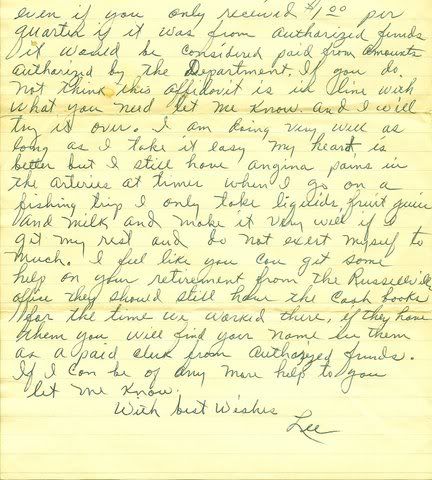 even if you only received $1.00 per
quarter if it was from authorized funds
it would be considered paid from amounts
authorized by the Department. If you do
not think this affidavit is in line with
what you need let me know and I will
try it over. I am doing very well as
long as I take it easy my heart is
better but I still have angina pains in
the arteries at times when I go on a
fishing trip I only take liquids, fruit juice
and milk and make it very well if I
git my rest and do not exert myself to
much. I feel like you can get some
help on your retirement from the Russellville
office they should still have the Cash books
for the time we worked there, if they have
them you will find your name in them
as a paid clerk from authorized funds.
If I can be of any more help to you
let me know.
With best Wishes
Lee